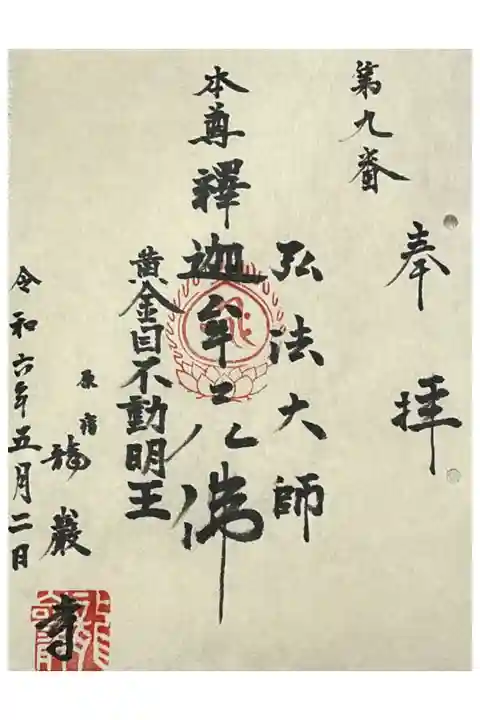 奉拝
第九番
弘法大師
本尊釋迦牟尼佛
黄金目不動明王
原宿龍巖寺
令和六年五月二日